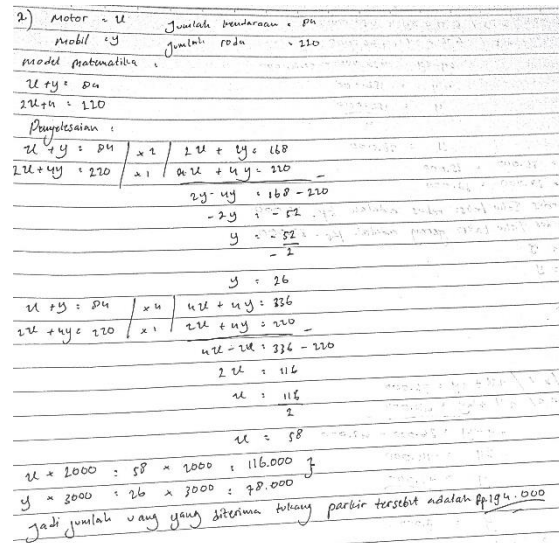 2) Motor = x Jumlah kendaraan = 84
mobil = y Jumlah roda = 220
model matematika :
x + y = 84
2x + 4 = 220
Penyelesaian :
x + y = 84 | x 2 | 2x + 2y = 168
2x + 4y = 220 | x 1 | 2x + 4y = 220 -
2y - 4y = 168 - 220
-2y = -52
y = -52
-2
y = 26
x + y = 84 | x 4 | 4x + 4y = 336
2x + 4y = 220 | x 1 | 2x + 4y = 220 -
4x - 2x = 336 - 220
2x = 116
x = 116
2
x = 58
x × 2000 = 58 × 2000 = 116.000 }
y × 3000 = 26 × 3000 = 78.000
Jadi jumlah uang yang diterima tukang parkir tersebut adalah Rp194.000